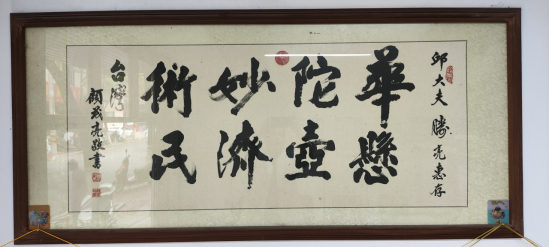 邱大夫 勝亮惠存
華陀妙術
懸壺濟民
台灣
亮敬書